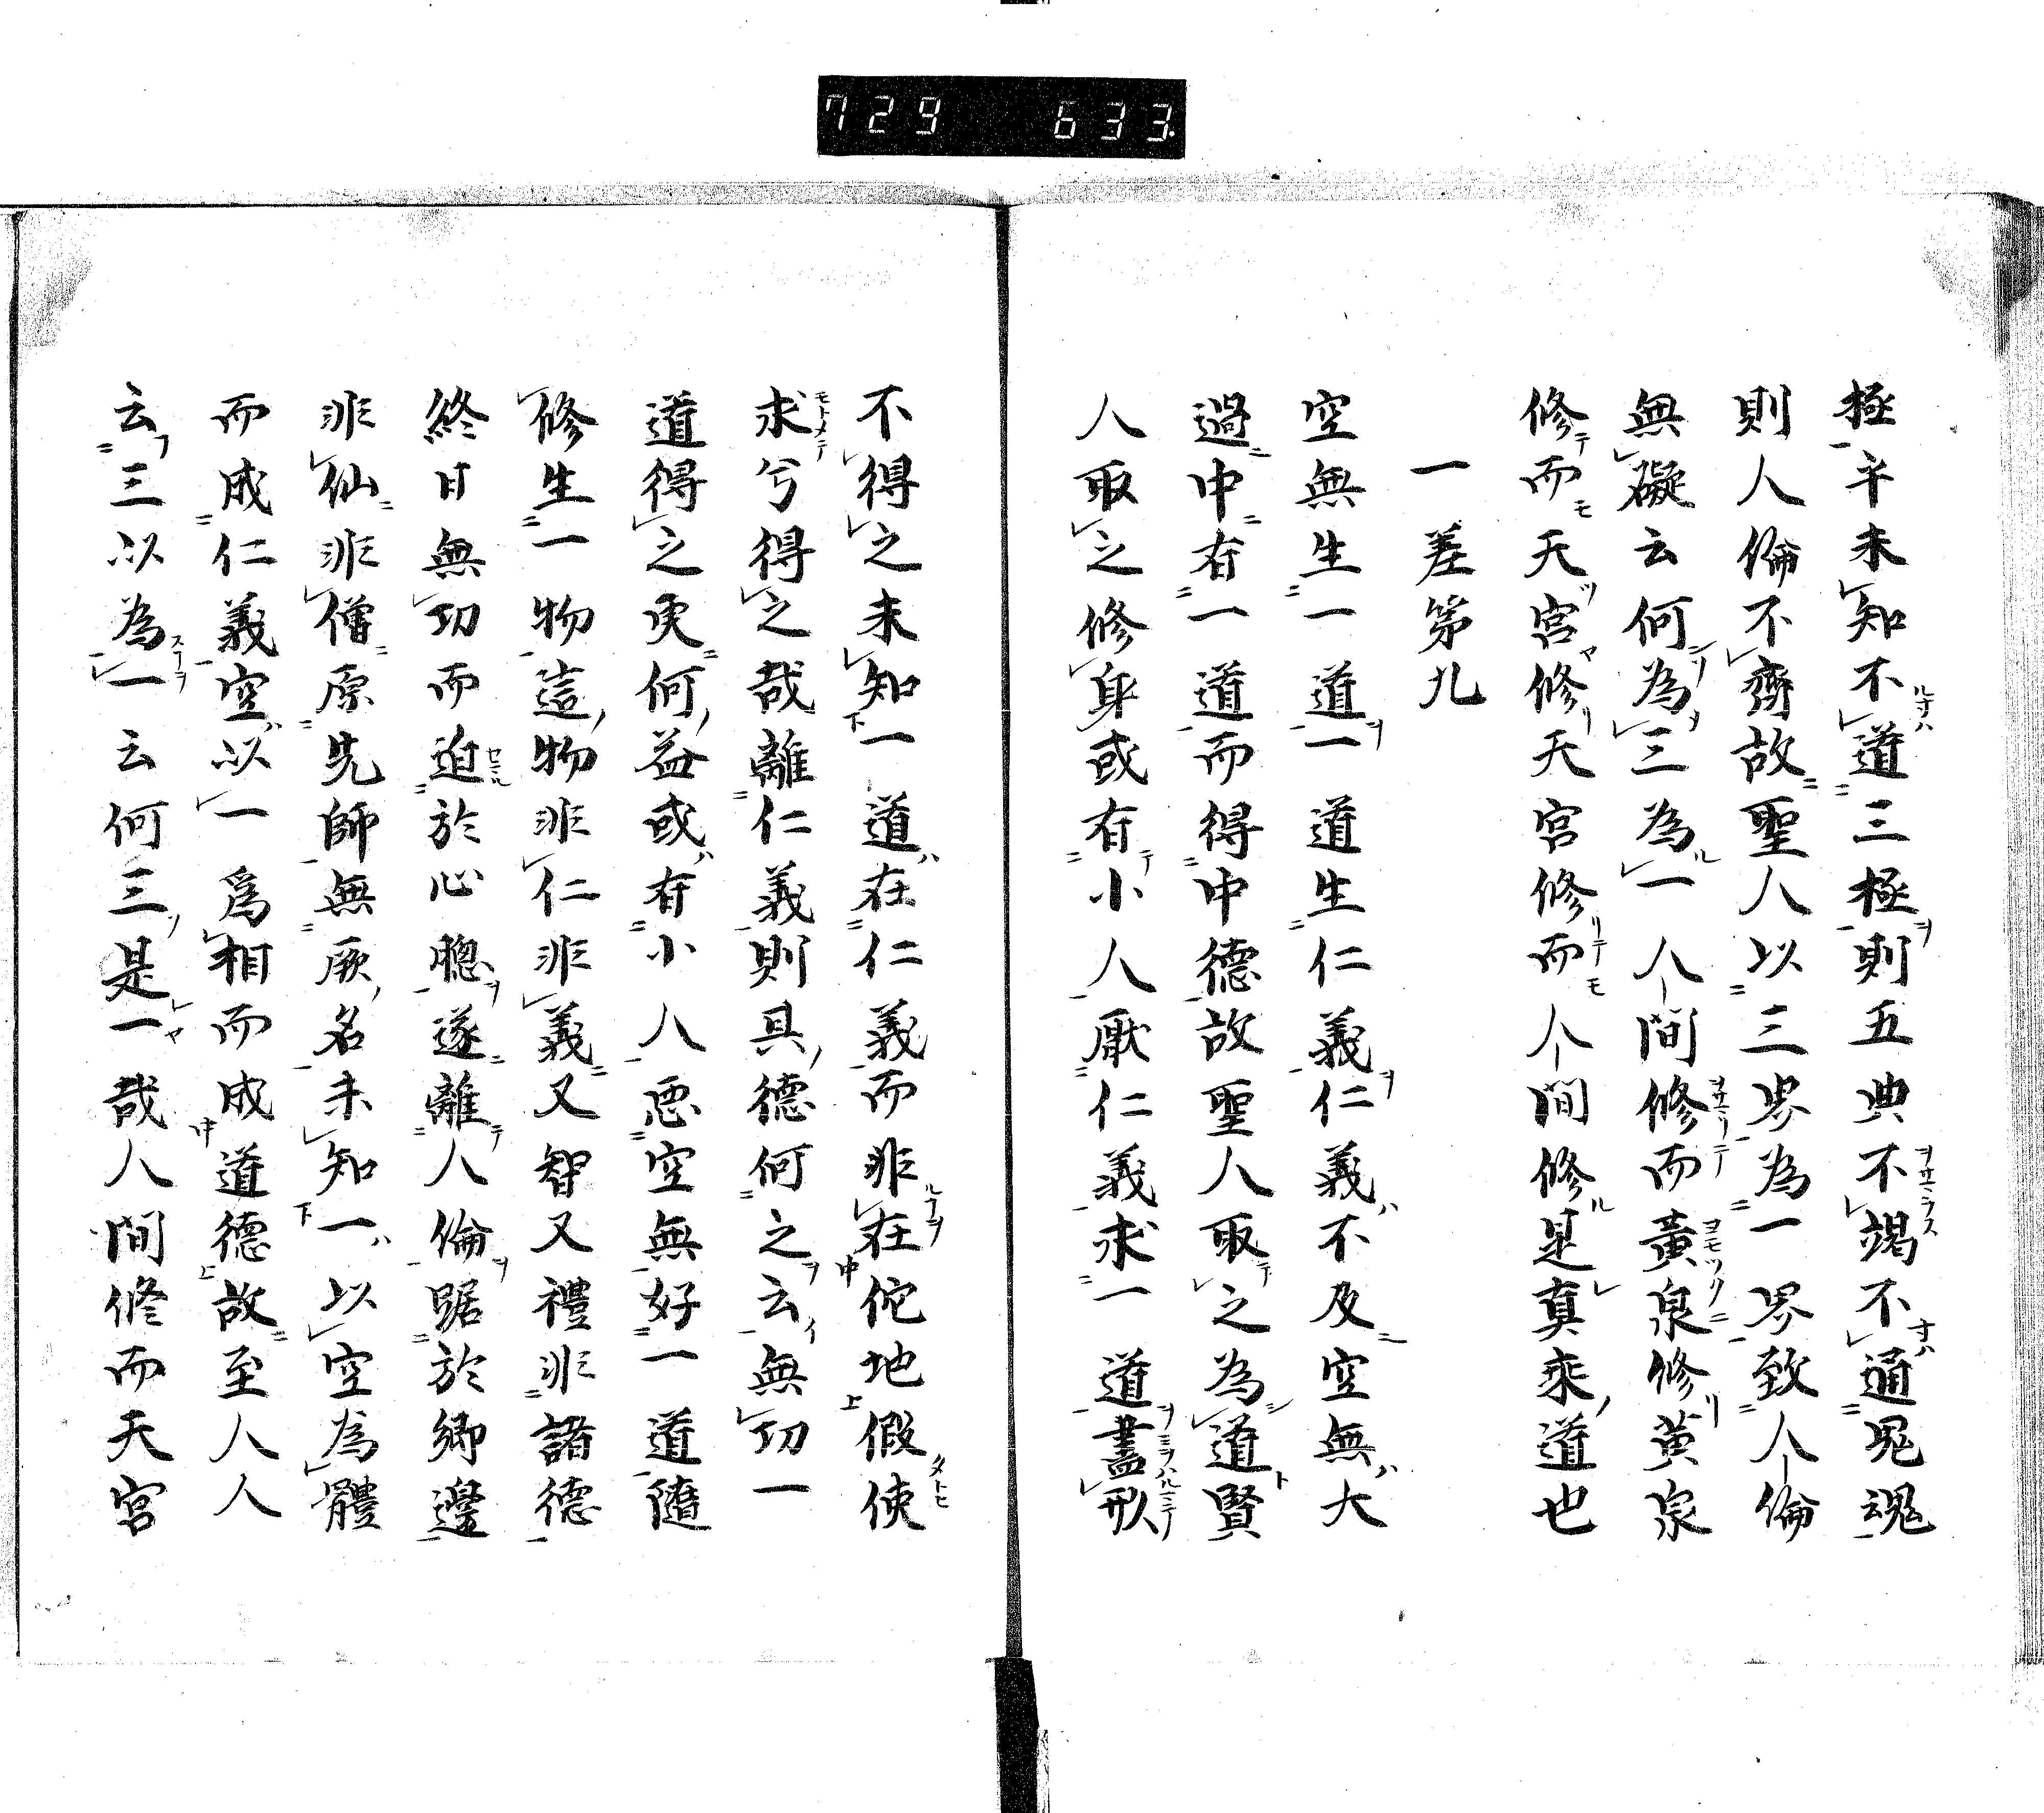 729 633
極乎未知不道三極則五典不竭不通鬼魂
則人倫不齊故聖人以三界為一界致人倫
無礙云何為三為一人間修而黃泉修黃泉
修而天宮修天宮修而人間修是真乘道也
一差第九
空無生一道一道生仁義仁義不及空無大
過中有一道而得中德故聖人取之為道賢
人取之修身或有小人厭仁義求一道盡形
不得之未知一道在仁義而非在佗地假使
求兮得之哉離仁義則具德何之云無切一
道得之更何益或有小人惡空無好一道隨
修生一物這物非仁非義又智又禮非諸德
終日無切而迫於心聰遂離人倫踞於鄉邊
非仙非僧原先師無厥名未知一以空為體
而成仁義空以一爲相而成道德故至人人
云三以為一云何三是一哉人間修而天宮